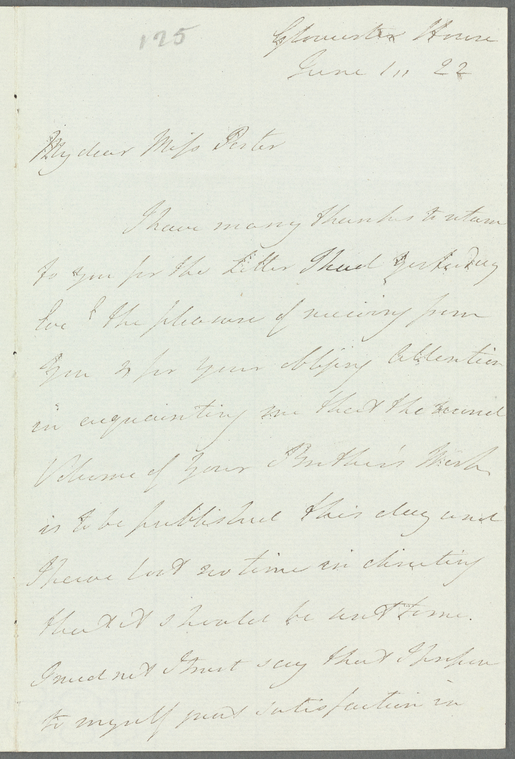 125
Gloucester House
June 1st 22
My dear Miss Porter
I have many thanks to return
to you for the Letter I had yesterday
Eve g the pleasure of receiving from
you & for your obliging Attention
in acquainting me that the second
Volume of your Brother's Work
is to be published this day and
I have lost no time in directing
that it should be sent to me.
I need not I trust say that I propose
to myself great satisfaction in